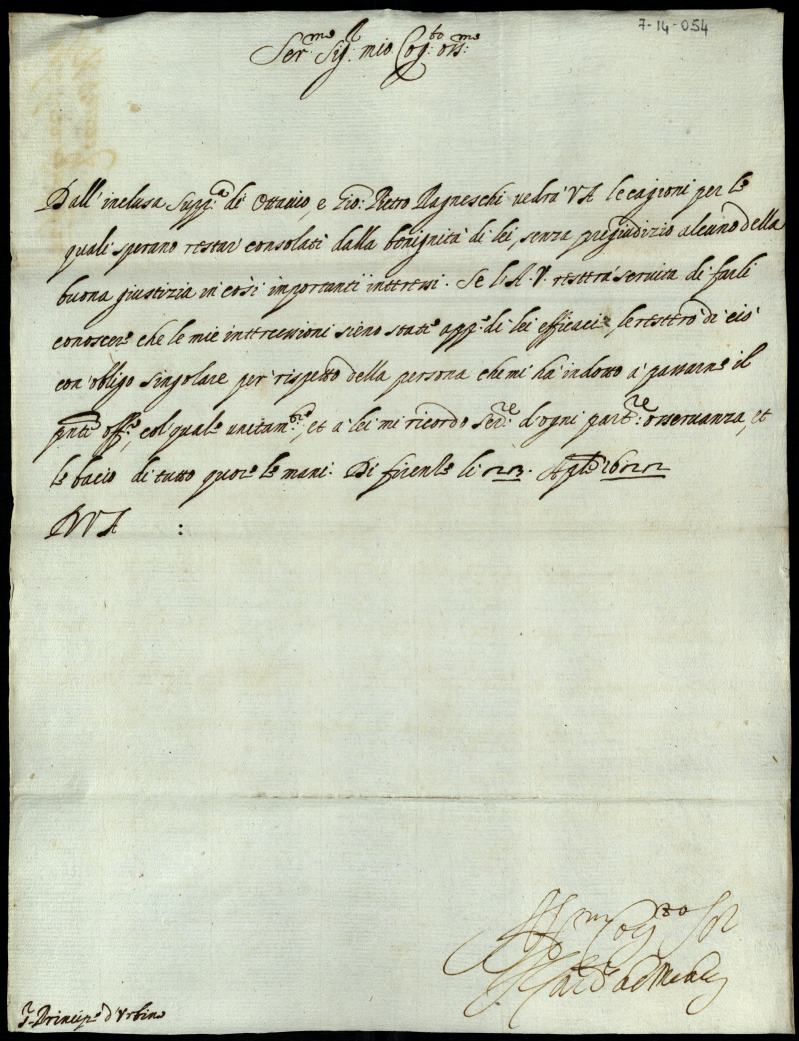 7-14-054
Ser.mo Sig.r mio Cog.to oss.mo
Dall' inclusa Supp.ca di Ottavio, e Gio: Pietro Ragneschi vedrà V A le cagioni per le
quali sperano restar' consolati dalla benignità di lei, senza pregiudizio alcuno della
buona giustizia in così importanti interessi. Se l'A. V. resterà servita di farli
conoscere che le mie intercessioni sieno state app.o di lei efficaci, le resterò di ciò
con obligo singolare per rispetto della persona che mi hà indotto à passarne il
pnte off.o, col quale unitam.te, et à lei mi ricordo Ser.re d'ogni part.re osservanza, et
le bacio di tutto quore le mani. Di firenze li
D V A :
Aff.mo Cog.to Ser.re
Il Card.l de Medici
S.r Principe d'Urbino